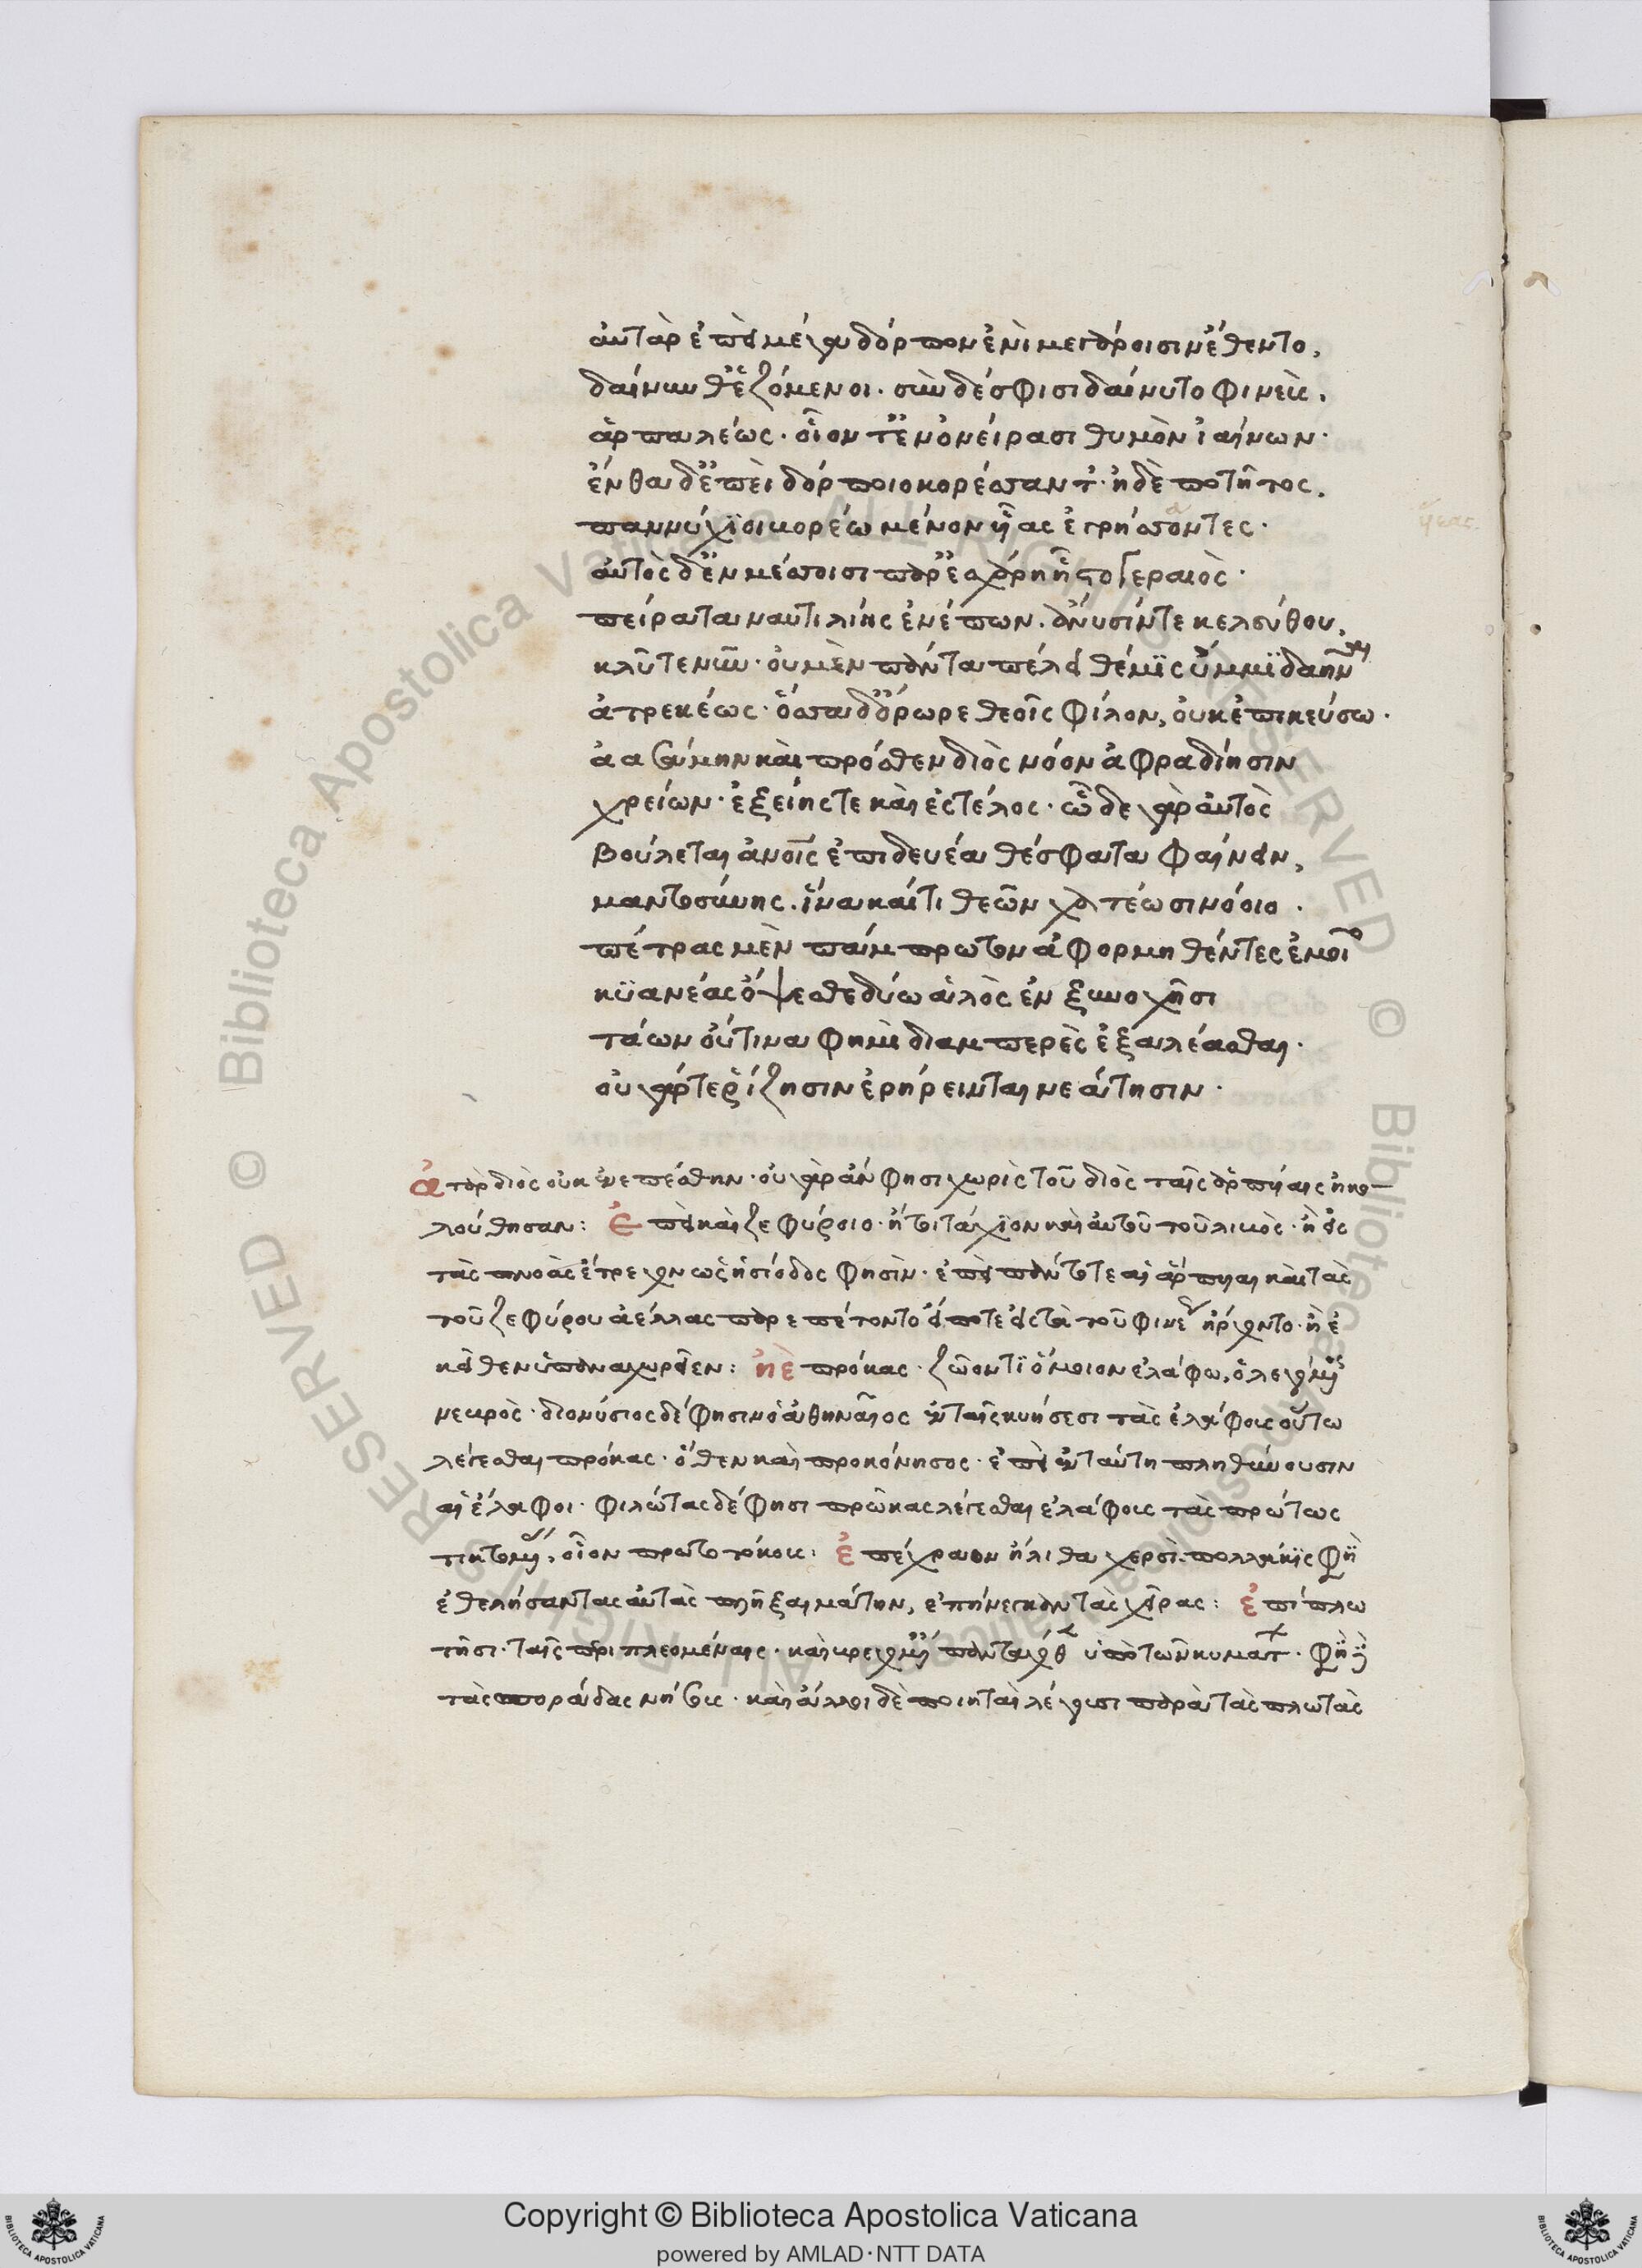 αὐτὰρ ἐπεὶ μέγα δόρπον ἐνὶ μεγάροισιν ἔθεντο,
δαίνυνθ' ἑζόμενοι· σὺν δέ σφισι δαίνυτο φινεὺς,
ἁρπαλέως· οἷόν τ' ἐν ὀνείρασι θυμὸν ἰαίνων·
ἔνθα δ' ἐπεὶ δόρποιο κορέσσαντ'· ἠδὲ ποτῆτος,
παννύχϊοι βορέω μένον υἷας ἐγρήσσοντες·
αὐτὸς δ' ἐν μέσσοισι παρ' ἐσχάρῃ ἧστο γεραιὸς·
πείρατα ναυτιλίης ἐνέπων. ἄνυσίν τε κελεύθου,
κλῦτε νῦν· οὐ μὲν πάντα πέλει θέμϊς ὔμμϊ δαῆναι
ἀτρεκέως· ὅσσα δ' ὄρωρε θεοῖς φίλον, οὐκ ἐπικεύσω·
ἀασάμην καὶ πρόσθεν διὸς νόον ἀφραδίησιν
χρείων· ἑξείης τε καὶ ἐς τέλος· ὧδε γὰρ αὐτὸς
βούλεται ἀνοις ἐπιδευέα θέσφατα φαίνειν,
μαντοσύνης. ἵνα καί τι θεῶν χατέωσι νόοιο.
πέτρας μὲν πάμπρωτον ἀφορμηθέντες ἐμοῖο
κϋανέας ὄψεσθε δύω ἁλὸς ἐν ξυνοχῆσι
τάων οὔτινα φημὶ διαμπερὲς ἐξαλέασθαι·
οὐ γάρ τε ῥίζησιν ἐρήρεινται νεάτησιν·
ἀτὰρ διὸς οὔκεν ἐπέσθην· οὐ γὰρ ἄν φησι χωρὶς τοῦ διὸς ταῖς ἁρπυίαις ἠκο-
λούθησαν: Ἐπεὶ καὶ ζεφύροιο· ἤτοι τάχϊον καὶ αὐτοῦ τοῦ λιμὸς· ἢ εἰς
τὰς πνοὰς ἔτρεχον ὡς ἡσίοδος φησὶν· ἐπεὶ πάντοτε αἱ ἅρπυιαι καὶ τὰς
τοῦ ζεφύρου ἀέλλας παρεπέτοντο εἴποτε εἰς τὰ τοῦ φινέως ἤρχοντο· ἢ ἐ
κεῖθεν ὑπαναχωροῖεν: ἠὲ πρόκας· ζῶον τϊ ὅμοιον ἐλάφω, ὁ λεγόμενος
νεβρὸς· διονύσιος δέ φησιν ὁ ἀθηναῖος ἐν ταῖς κτίσεσι τὰς ἐλάφους οὕτω
λέγεσθαι πρόκας· ὅθεν καὶ προκόνησος· ἐπεὶ ἐν ταύτη πληθύνουσιν
αἱ ἔλαφοι· φιλώτας δέ φησι πρῶκας λέγεσθαι ἐλάφους τὰς πρώτως
τικτούσας, οἷον πρωτοτόκους: ἐπέχραον ἤλιθα χερσὶ· πολλάκϊς φησὶ
ἐθελήσαντας αὐτὰς πλῆξαι μάτην, ἐπήνεγκαν τὰς χεῖρας: ἐπὶ πλω
τῆσι· ταῖς περιπλεομέναις· καὶ κρεμαμέναις πανταχόθεν ὑπὸ τῶν κυμάτων· φησὶ
τὰς σποράδας νήσους· καὶ ἄλλοι δὲ ποιηταὶ λέγουσι παρὰ τὰς πλωτὰς
Copyright © Biblioteca Apostolica Vaticana
powered by AMLAD·NTT DATA